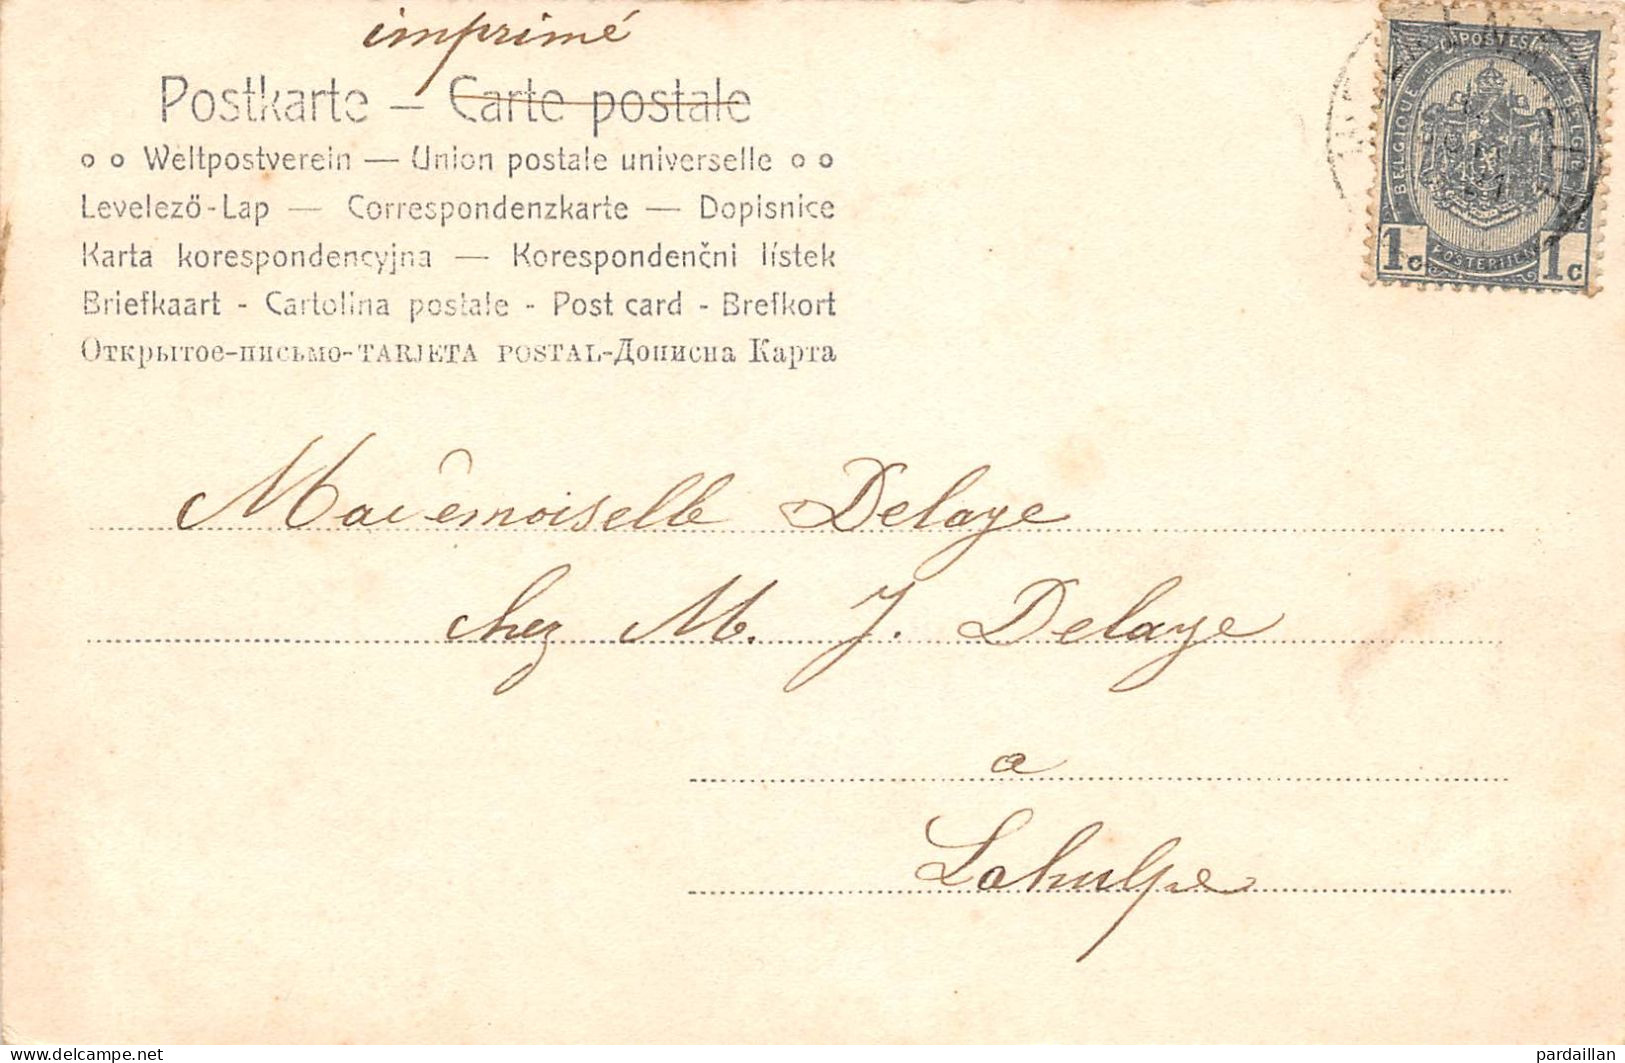 imprimé
Postkarte — Carte postale
o o Weltpostverein — Union postale universelle o o
Levelezö-Lap — Correspondenzkarte — Dopisnice
Karta korespondencyjna — Korespondenčni lístek
Briefkaart - Cartolina postale - Post card - Brefkort
Открытое-письмо-TARJETA POSTAL-Дописна Карта
POSTES
BELGIQUE BELGIË
1c POSTERIJEN 1c
Mademoiselle Delaye
chez M. J. Delaye
a
Lahulpe
delcampe.net
pardaillan